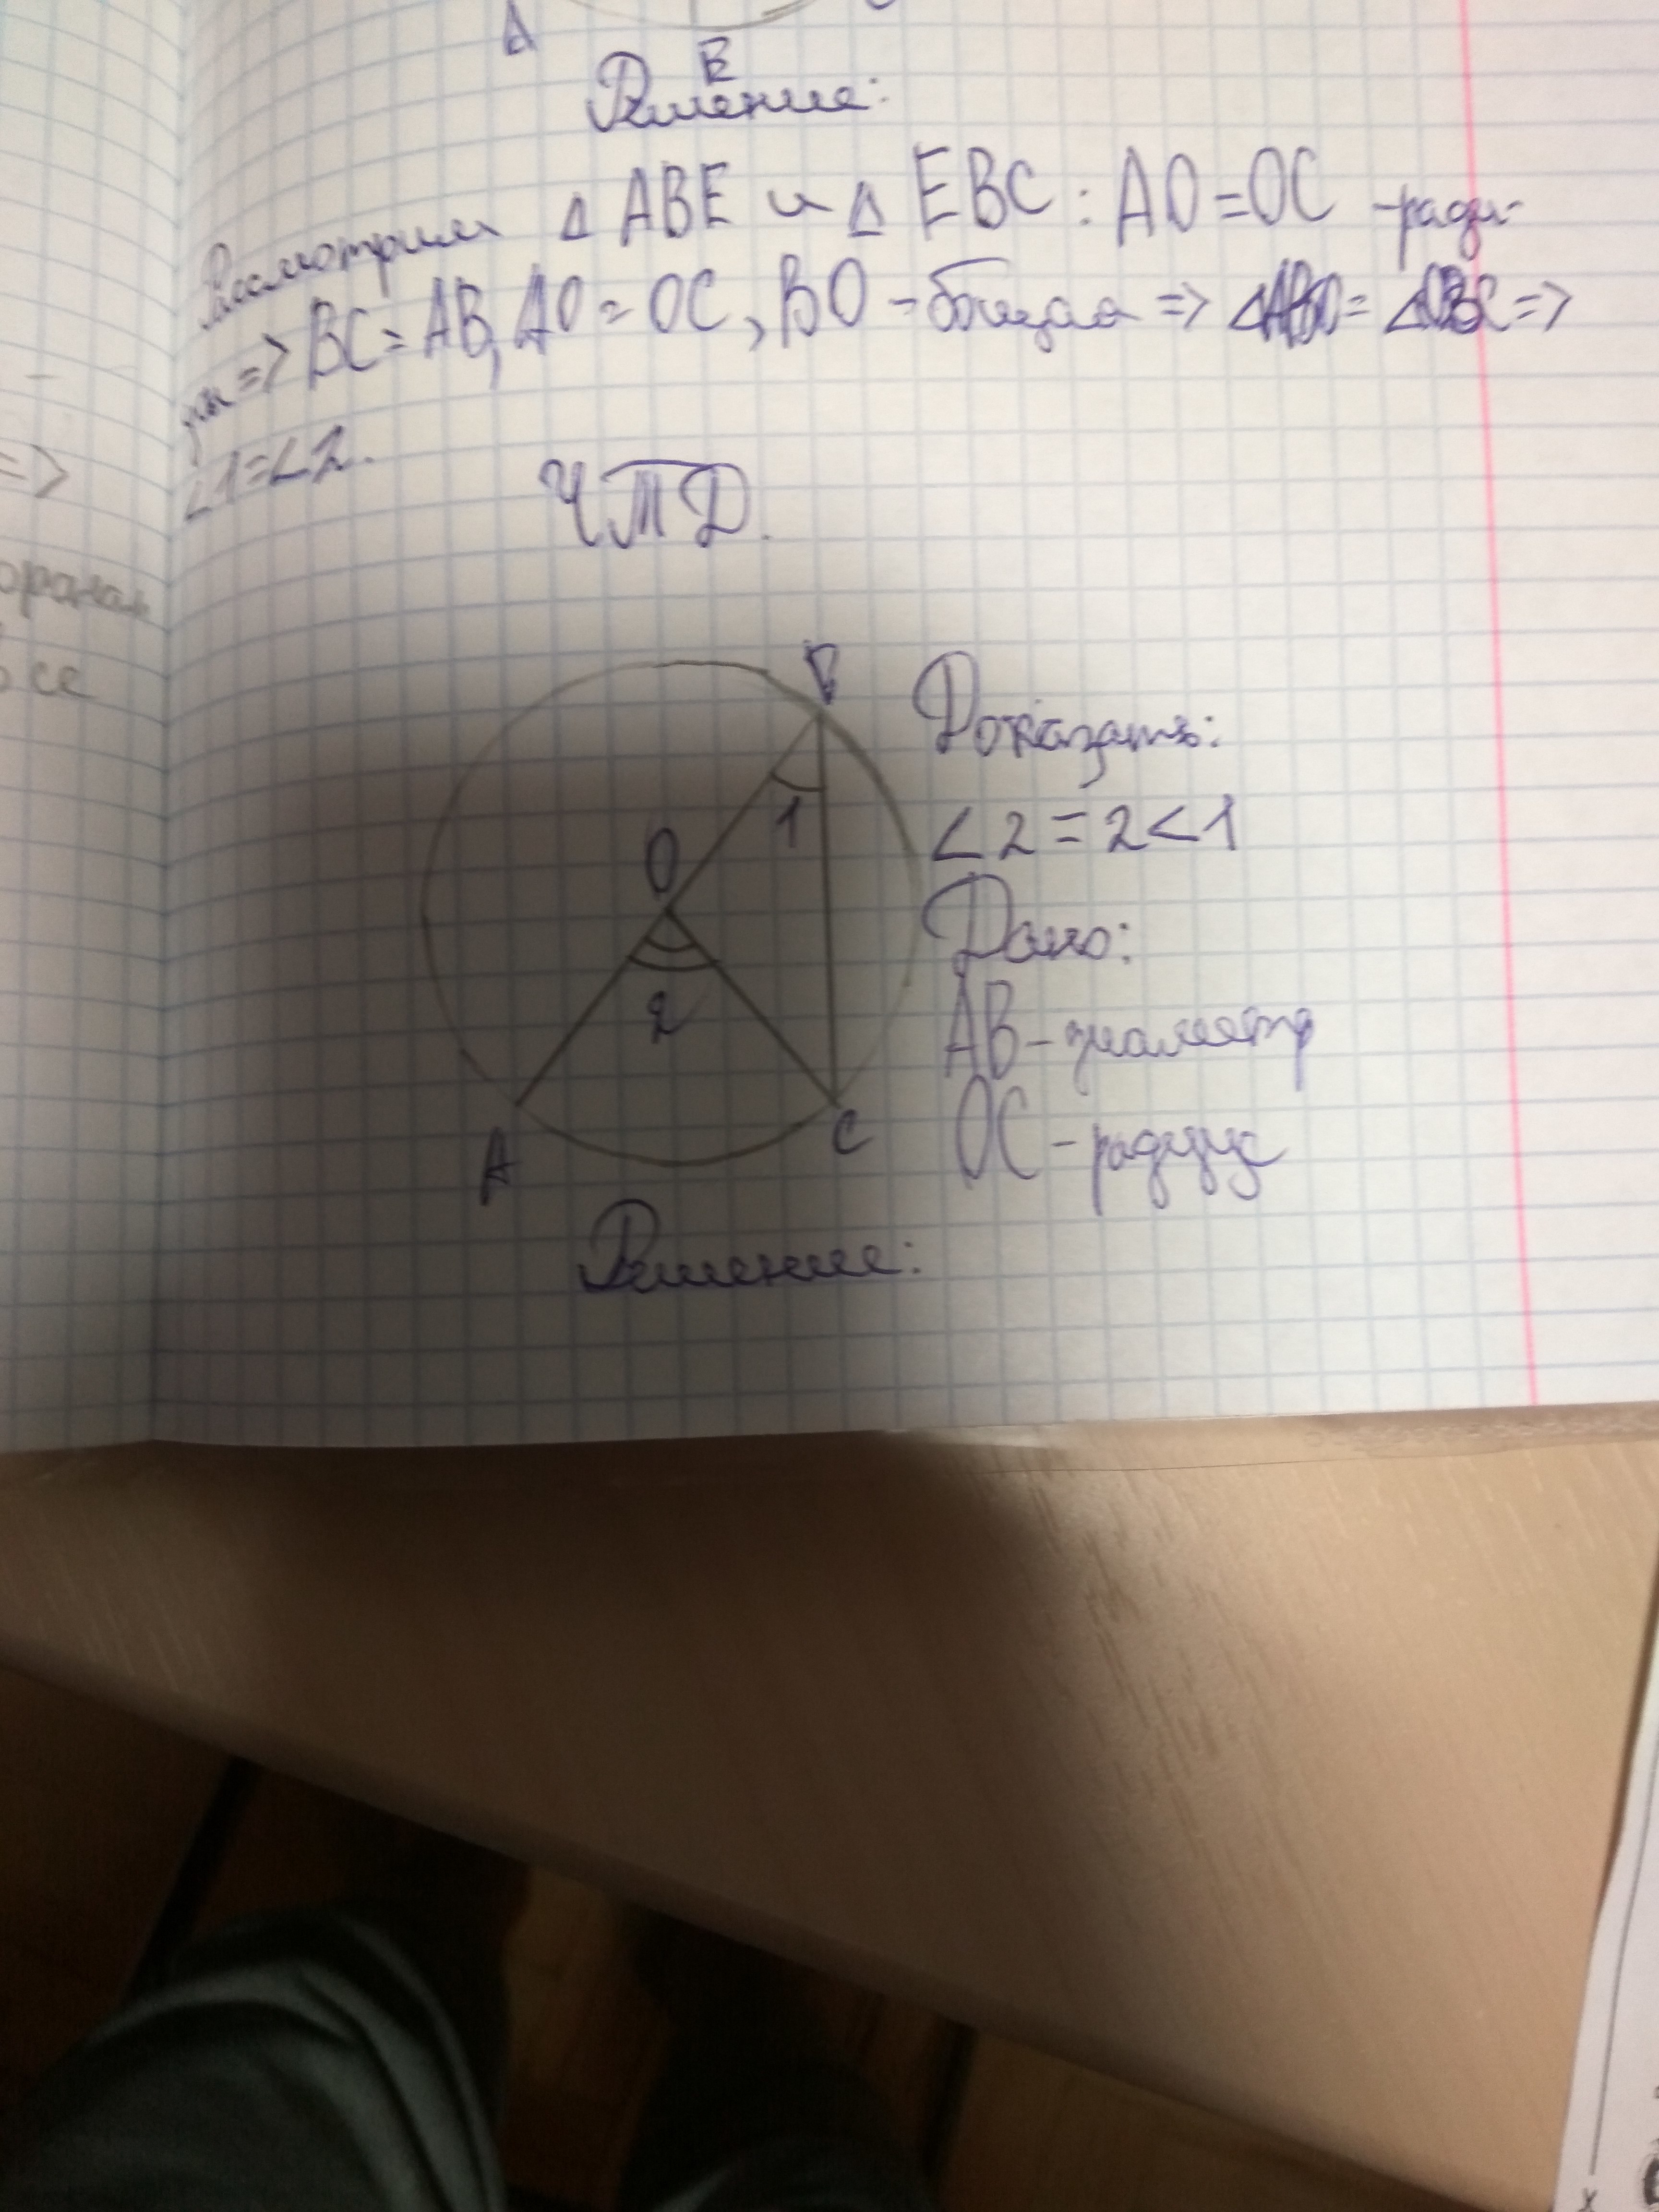 A
B
Решение:
Рассмотрим Δ ABE и Δ EBC : AO=OC -ради-
усы => BC= AB, AO = OC, BO - общая => ∠ABO= ∠OBC =>
∠1=∠2.
ЧТД.
=>
B
O
1
2
A
C
Доказать:
<2=2<1
Дано:
AB-диаметр
OC-радиус
Решение: